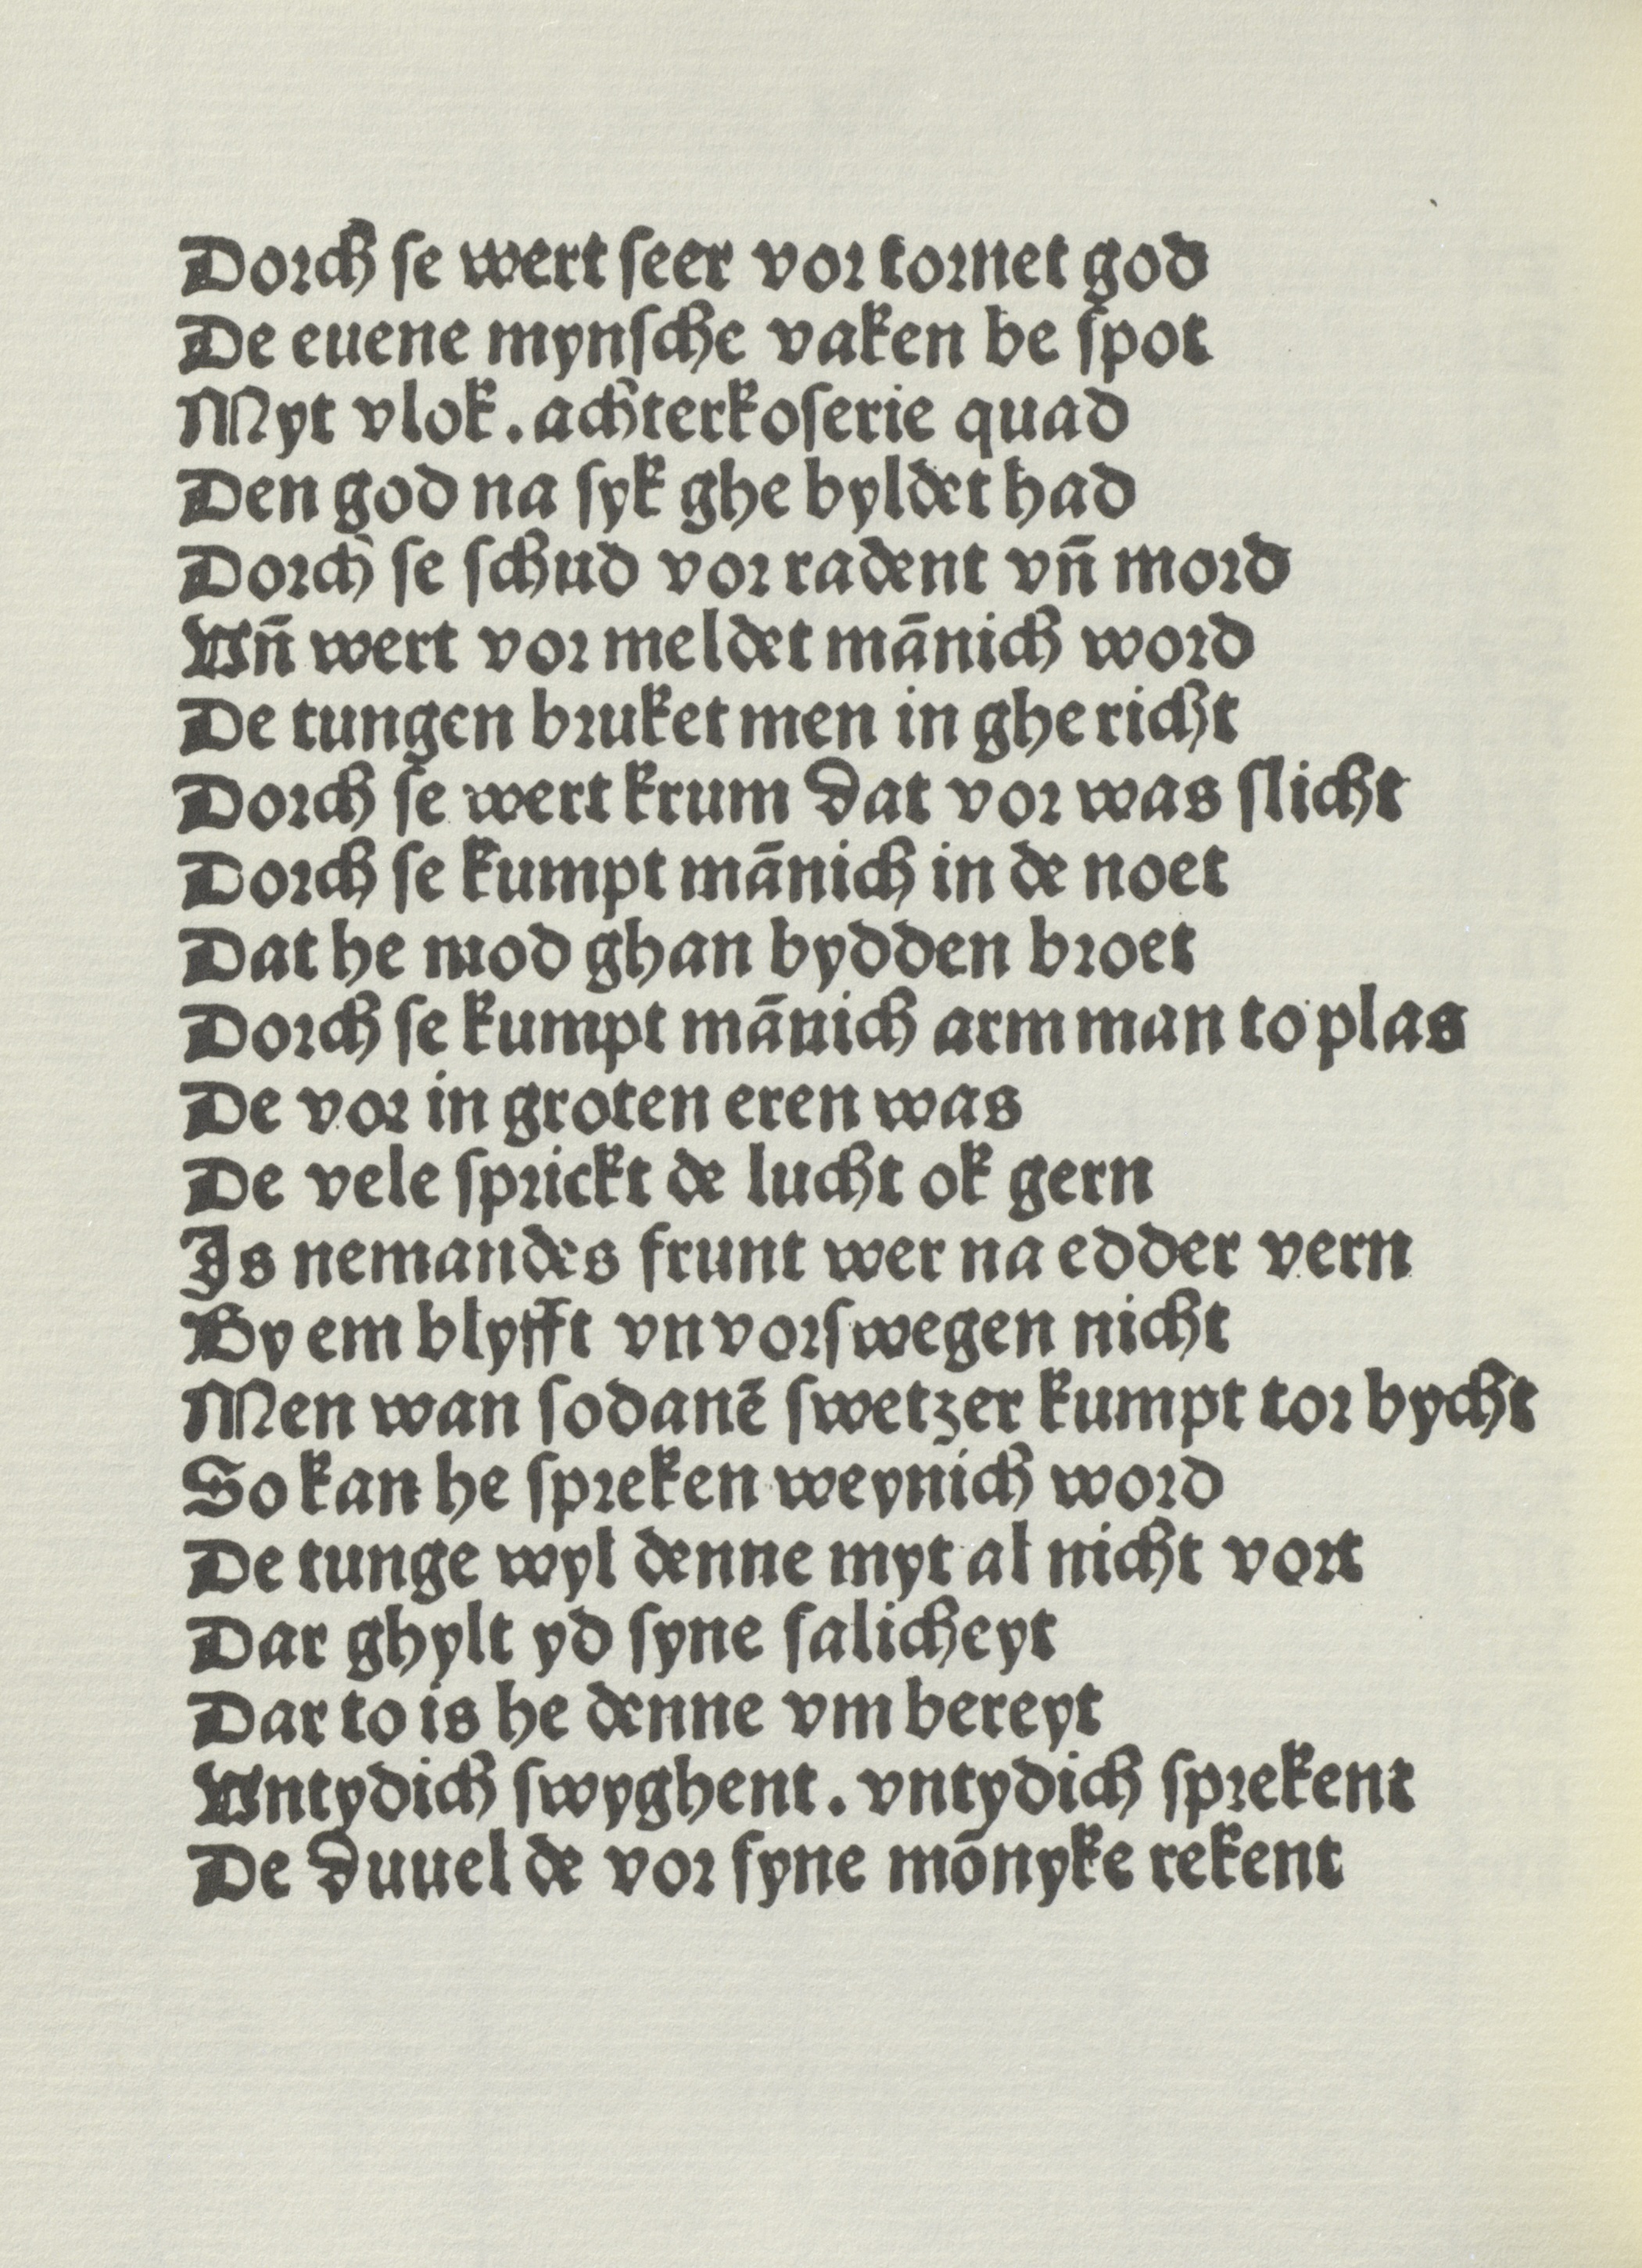 Dorch se wert seer vor tornet god
De euene mynsche vaken be spot
Myt vlok. achterkoserie quad
Den god na syk ghe byldet had
Dorch se schud vor radent vn̄ mord
Vn̄ wert vor meldet mānich word
De tungen bruket men in ghe richt
Dorch se wert krum dat vor was slicht
Dorch se kumpt mānich in de noet
Dat he mod ghan bydden broet
Dorch se kumpt mānich arm man to plas
De vor in groten eren was
De vele sprickt de lucht ok gern
Is nemandes frunt wer na edder vern
By em blyfft vn vorswegen nicht
Men wan sodanē swetzer kumpt tor bycht
So kan he spreken weynich word
De tunge wyl denne myt al nicht vort
Dar ghylt yd syne salicheyt
Dar to is he denne vm bereyt
Vntydich swyghent. vntydich sprekent
De duuel de vor syne mōnyke rekent